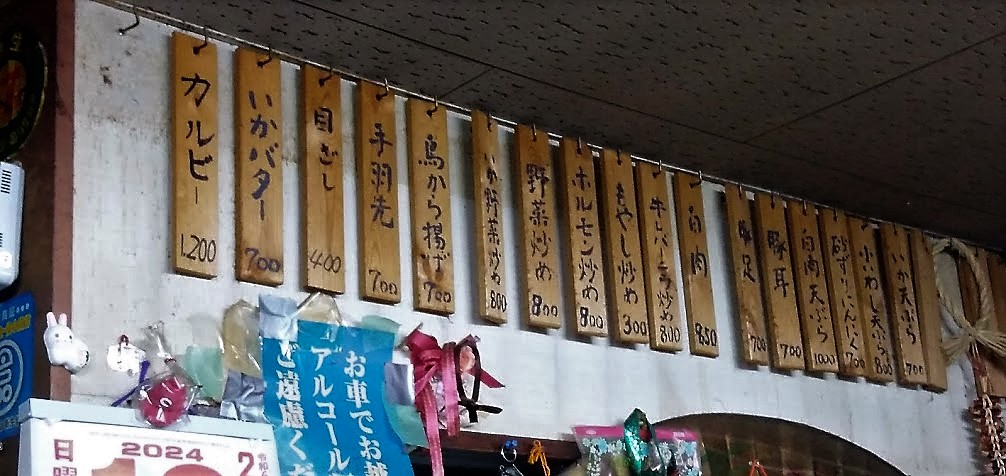 カルビー
1.200
いかバター
700
目ざし
400
手羽先
700
鳥から揚げ
700
いか野菜炒め
800
野菜炒め
800
ホルモン炒め
800
もやし炒め
300
牛レバーニラ炒め
800
白肉
850
豚足
700
豚耳
700
白肉天ぷら
1000
砂ずりにんにく
700
小いわし天ぷら
800
いか天ぷら
700
お車でお越
アルコール
ご遠慮くだ
2024
日
曜